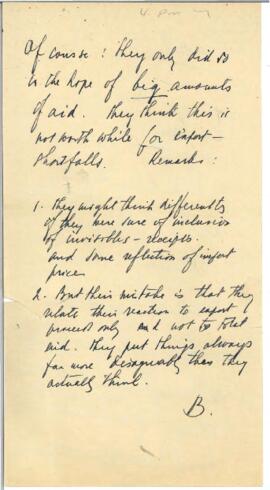 Of course: they only did so
in the hope of big amounts
of aid. They think this is
not worth while for export-
shortfalls. Remarks:
1. They might think differently
if they were sure of inclusion
of invisibles-receipts.
and some reflection of import
prices
2. But their mistake is that they
relate their reaction to export
proceeds only and not to total
aid. They put things always
far more disagreeably than they
actually think.
B.